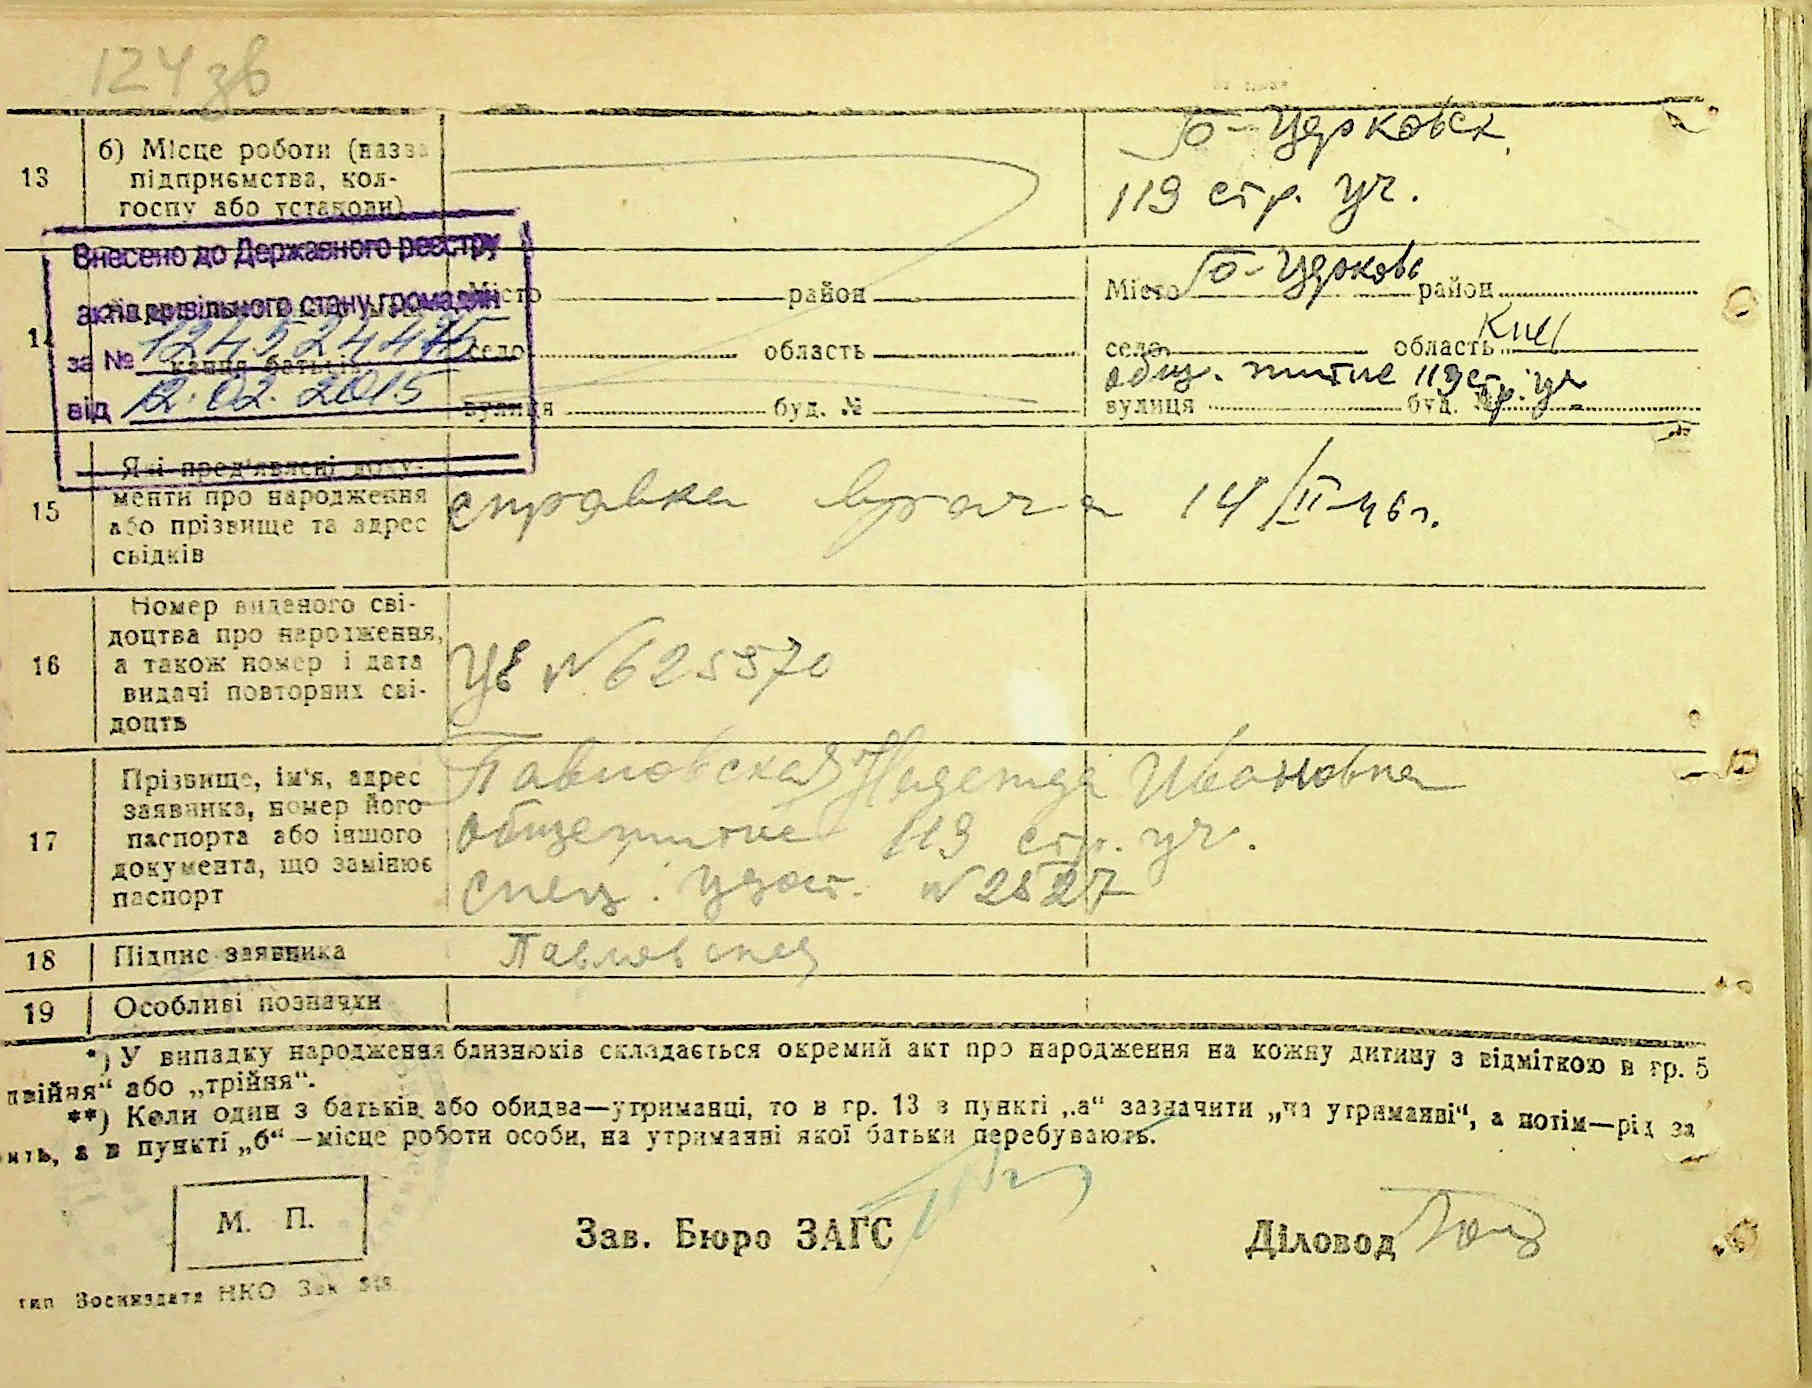 124 зв
13
б) Місце роботи (назва
підприємства, кол-
госпу або установи)
Б-Церковск
119 стр. уч.
Внесено до Державного реєстру
актів цивільного стану громадян
за №
від 12.02.2015
14
Місто район
село область
вулиця буд. №
Місто Б-Церковь район
село область Киев
общ.
119 стр. уч
вулиця буд. №
15
Які пред'явлені доку-
менти про народження
або прізвище та адрес
свідків
справка врача 14/II-46 г.
16
Номер виданого сві-
доцтва про народження,
а також номер і дата
видачі повторних сві-
доцтв
№ 625570
17
Прізвище, ім'я, адрес
заявника, номер його
паспорта або іншого
документа, що замінює
паспорт
Павловская Надежда Ивановна
общежитие 119 стр. уч.
спец. удост. № 2527
18
Підпис заявника
Павловская
19
Особливі позначки
*) У випадку народження близнюків складається окремий акт про народження на кожну дитину з відміткою в гр. 5
двійня“ або „трійня“.
**) Коли один з батьків або обидва—утриманці, то в гр. 13 в пункті „а“ зазначити „на утриманні“, а потім—рід за
, а в пункті „б“ —місце роботи особи, на утриманні якої батьки перебувають.
М. П.
Зав. Бюро ЗАГС
Діловод
тип Воениздата НКО Зак